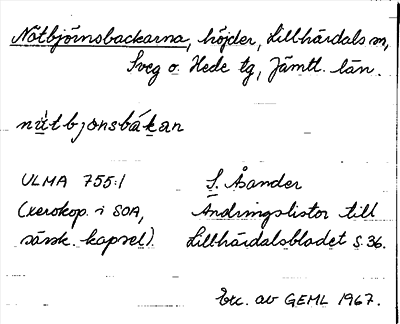 Notbjörnsbackarna, höjder, Lillhärdals sn,
Sveg o. Hede tg, Jämtl. län.
nútbjonsbákan
ULMA 755:1
(xerokop. i SOA,
särsk. kapsel).
S. Åsander
Ändringslistor till
Lillhärdalsbladet s. 36.
Exc. av GEML 1967.